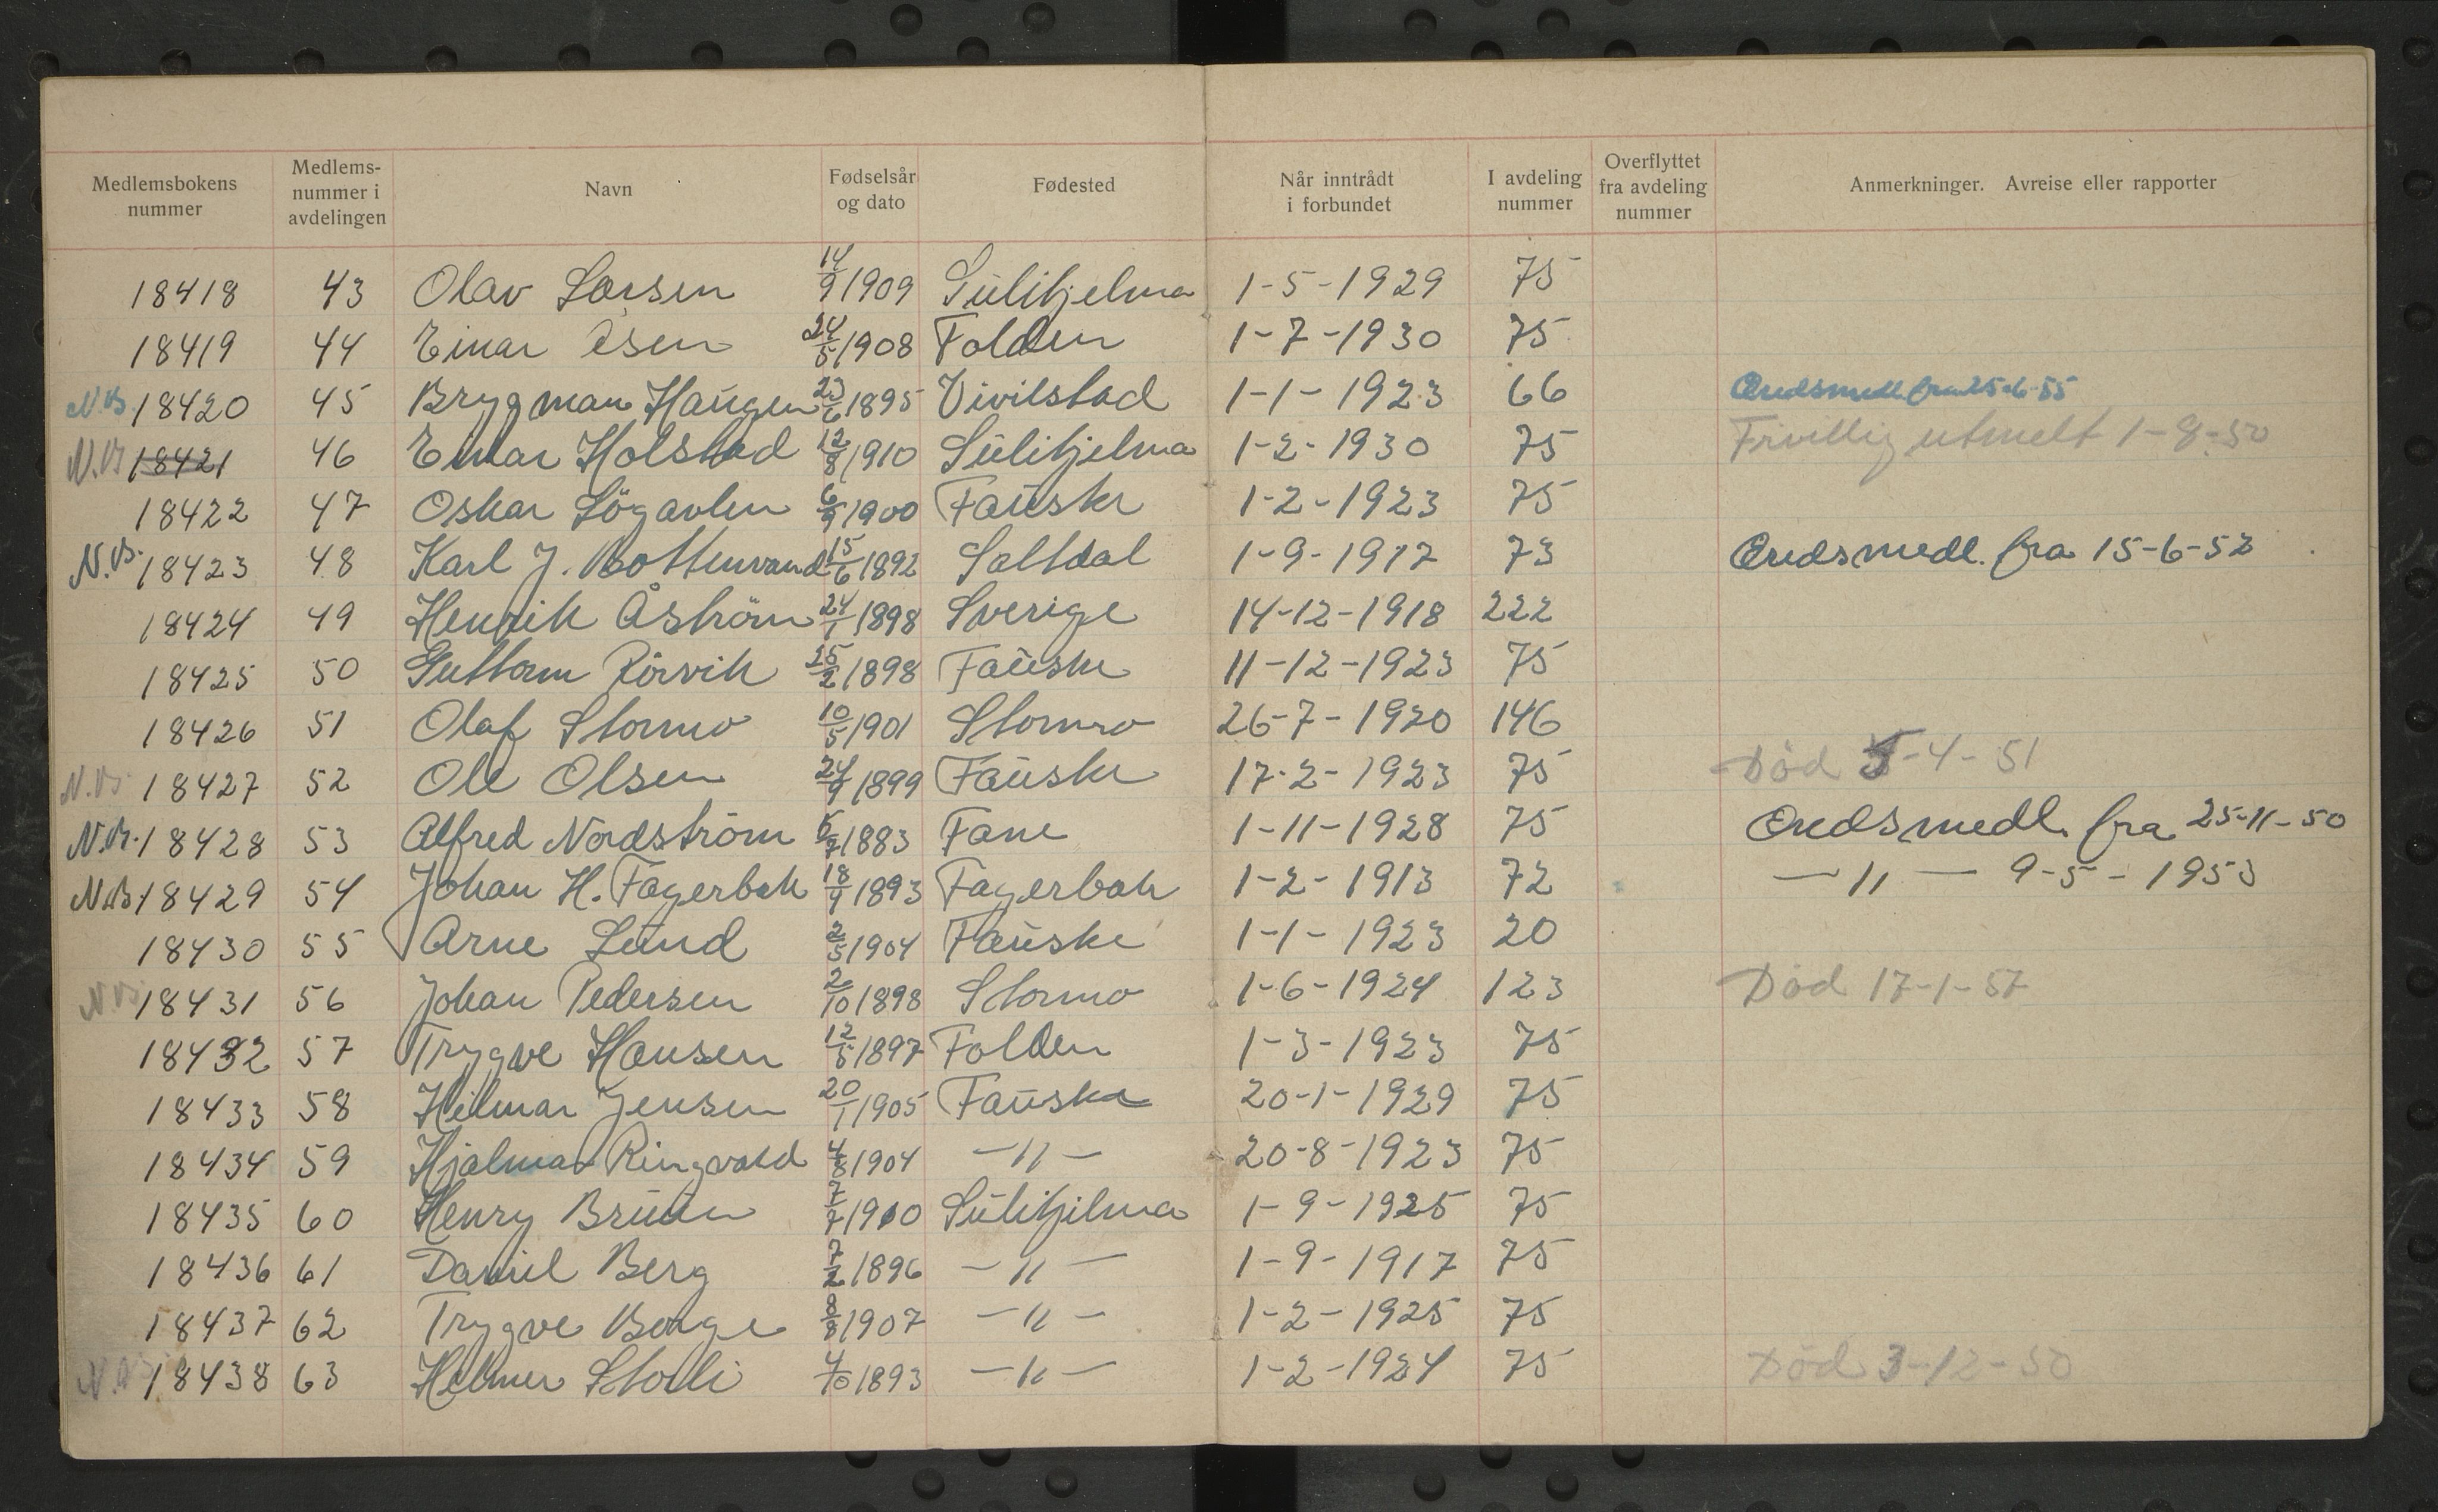 Medlemsbokens nummer | Medlems-nummer i avdelingen | Navn | Fødselsår og dato | Fødested | Når inntrådt i forbundet | I avdeling nummer | Overflyttet fra avdeling nummer | Anmerkninger. Avreise eller rapporter
18418 43 Olav Larsen 14/9 1909 Sulitjelma 1-5-1929 75
18419 44 Einar Åsen 24/5 1908 Folden 1-7-1930 75
N.B. 18420 45 Brygman Haugen 23/6 1895 Vivilstad 1-1-1923 66 Æredsmedl. fra 25-6-55
N.B. 18421 46 Einar Holstad 12/8 1910 Sulitjelma 1-2-1930 75 Frivillig utmelt 1-8-50
18422 47 Oskar Løgavlen 6/9 1900 Fauske 1-2-1923 75
N.B. 18423 48 Karl J. Bottenvand 15/6 1892 Saltdal 1-9-1912 73 Æredsmedl. fra 15-6-52
18424 49 Henrik Åström 24/1 1898 Sverige 14-12-1918 222
18425 50 Guttorm Rørvik 25/2 1898 Fauske 11-12-1923 75
18426 51 Olaf Stormo 10/5 1901 Stormo 26-7-1920 146
N.B. 18427 52 Ole Olsen 24/9 1899 Fauske 17-2-1923 75 Død 5-4-51
N.B. 18428 53 Alfred Nordström 5/7 1883 Fane 1-11-1928 75 Æredsmedl. fra 25-11-50
N.B. 18429 54 Johan H. Fagerbak 18/9 1893 Fagerbak 1-2-1913 72 —〃— 9-5-1953
18430 55 Arne Lund 2/5 1904 Fauske 1-1-1923 20
N.B. 18431 56 Johan Pedersen 2/10 1898 Stormo 1-6-1924 123 Død 17-1-57
18432 57 Trygve Hansen 12/5 1897 Folden 1-3-1923 75
18433 58 Hilmar Jensen 20/1 1905 Fauske 20-1-1929 75
18434 59 Hjalmar Ringvold 4/8 1904 —〃— 20-8-1923 75
18435 60 Henry Bruun 7/7 1900 Sulitjelma 1-9-1925 75
18436 61 Daniel Berg 7/2 1896 —〃— 1-9-1917 75
18437 62 Trygve Borge 8/8 1907 —〃— 1-2-1925 75
N.B. 18438 63 Helmer Storli 4/10 1893 —〃— 1-2-1924 75 Død 3-12-50